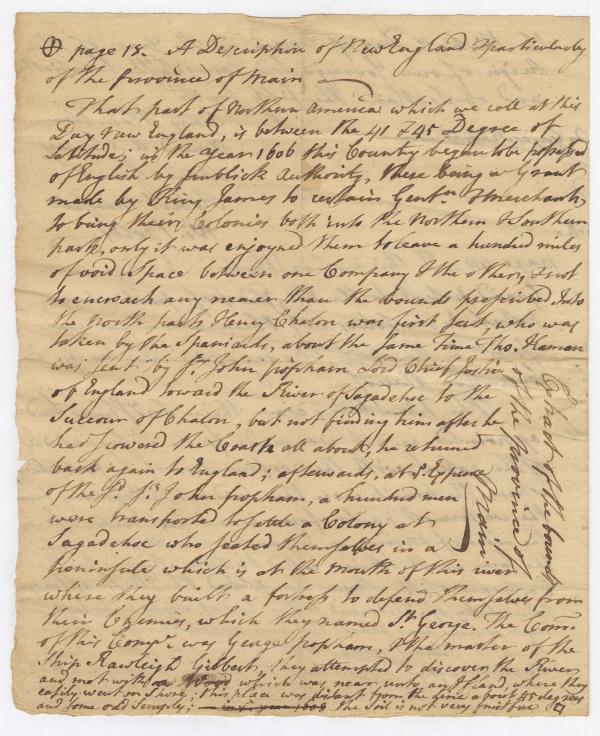 page 18. A Description of New England & particularly
of the Province of Main
That part of Northern America which we call at this
Day New England, is between the 41 & 45 Degree of
Latitude; in the year 1606 this County began to be possessed
of English by publick Authority, there being a Grant
made by King James to certain Gentn. & Merchants,
to bring their Colonies both into the Northern & Southern
parts, only it was enjoyned them to leave a hundred miles
of void Space between one Company & the other, & not
to encroach any nearer than the bounds prescribed Into
the North parts Henry Chalon was first sent, who was
taken by the Spaniards, about the same Time Tho. Haman
was sent by Sr. John popham Lord Chief Justice
of England toward the River of Sagadehoc to the
Succour of Chalon, but not finding him after he
had scowered the Coasts all about, he returned
back again to England; afterwards, at ye. Expence
of the sd. Sr. John popham, a hundred men
were transported to settle a Colony at
Sagadehoc who seated themselves in a
peninsule which is at the mouth of this river
where they built a fortress to defend themselves from
their Enemies, which they named St. George. The Com
of this Compa. was George popham, & the master of the
Ship Rawleigh Gilbert, they attempted to discover the Rivers
and met with a which was near unto an Island, where they
easily went on Shore; this place was distant from the line about 45 degrees
and some odd Scruples; in ye. year 1608 the Soil is not very fruitful
Extract of the bounds
of the province of
Main